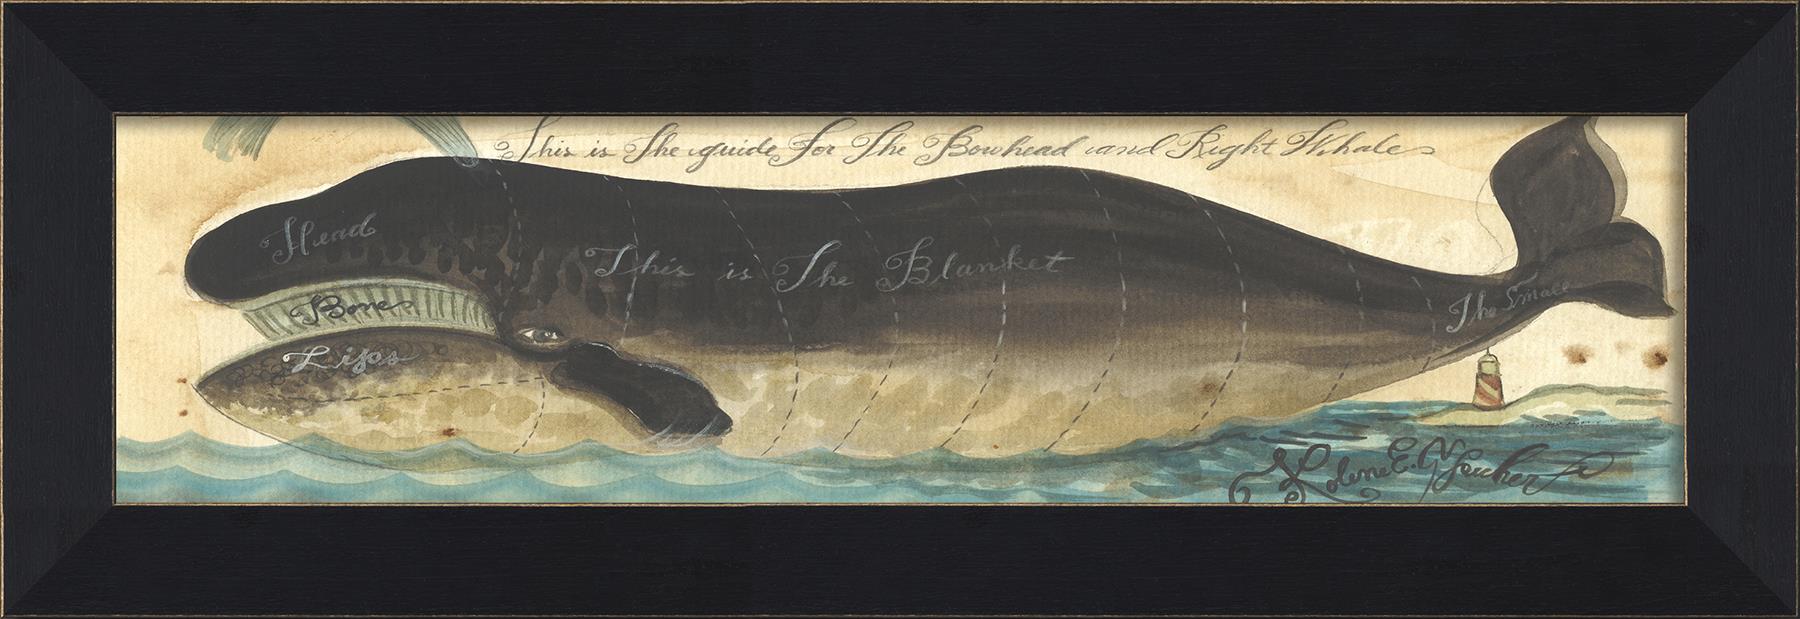 This is The guide For The Bowhead and Right Whale
Head
This is The Blanket
Bone
The Small
Lips
Kolene E.